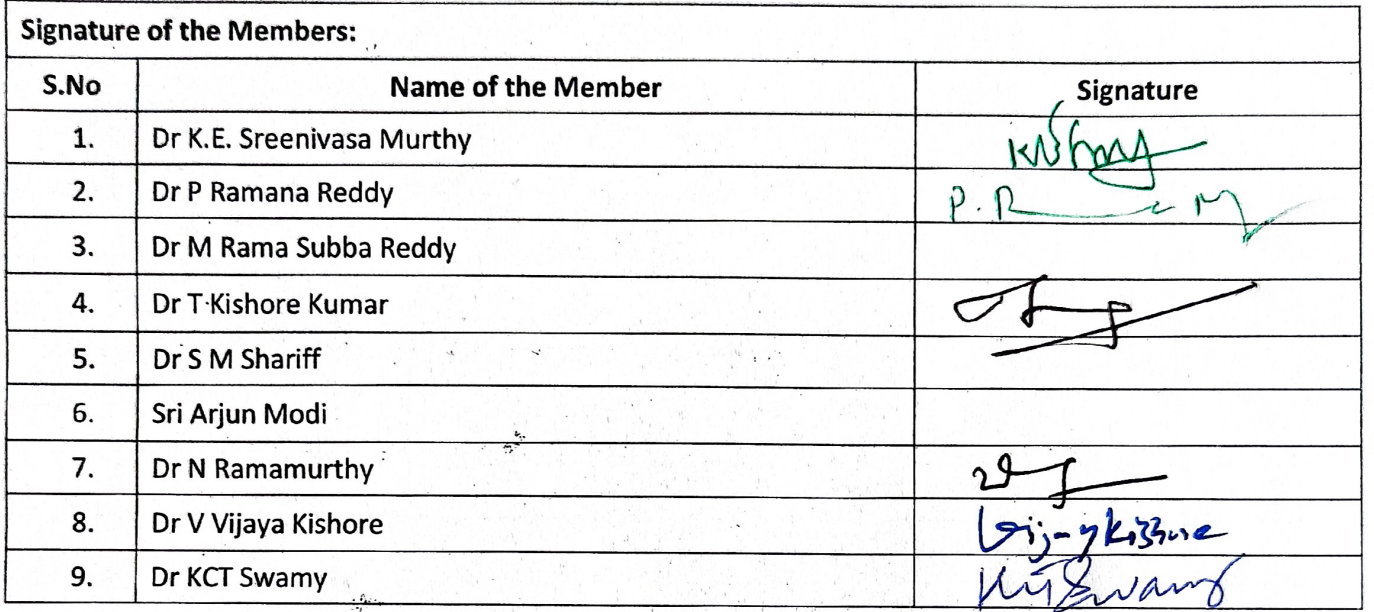 Signature of the Members:
S.No Name of the Member Signature
1. Dr K.E. Sreenivasa Murthy
2. Dr P Ramana Reddy P. R
3. Dr M Rama Subba Reddy
4. Dr T Kishore Kumar
5. Dr S M Shariff
6. Sri Arjun Modi
7. Dr N Ramamurthy
8. Dr V Vijaya Kishore Vijaykishore
9. Dr KCT Swamy KCTSwamy